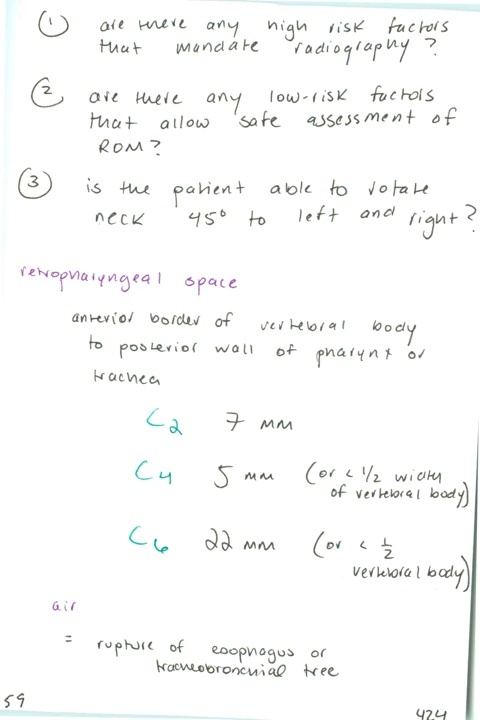 ① are there any high risk factors
that mandate radiography?
② are there any low-risk factors
that allow safe assessment of
ROM?
③ is the patient able to rotate
neck 45° to left and right?
retropharyngeal space
anterior border of vertebral body
to posterior wall of pharynx or
trachea
C2 7 mm
C4 5 mm (or < 1/2 width
of vertebral body)
C6 22 mm (or < 1/2
vertebral body)
air
= rupture of esophagus or
tracheobronchial tree
59
424